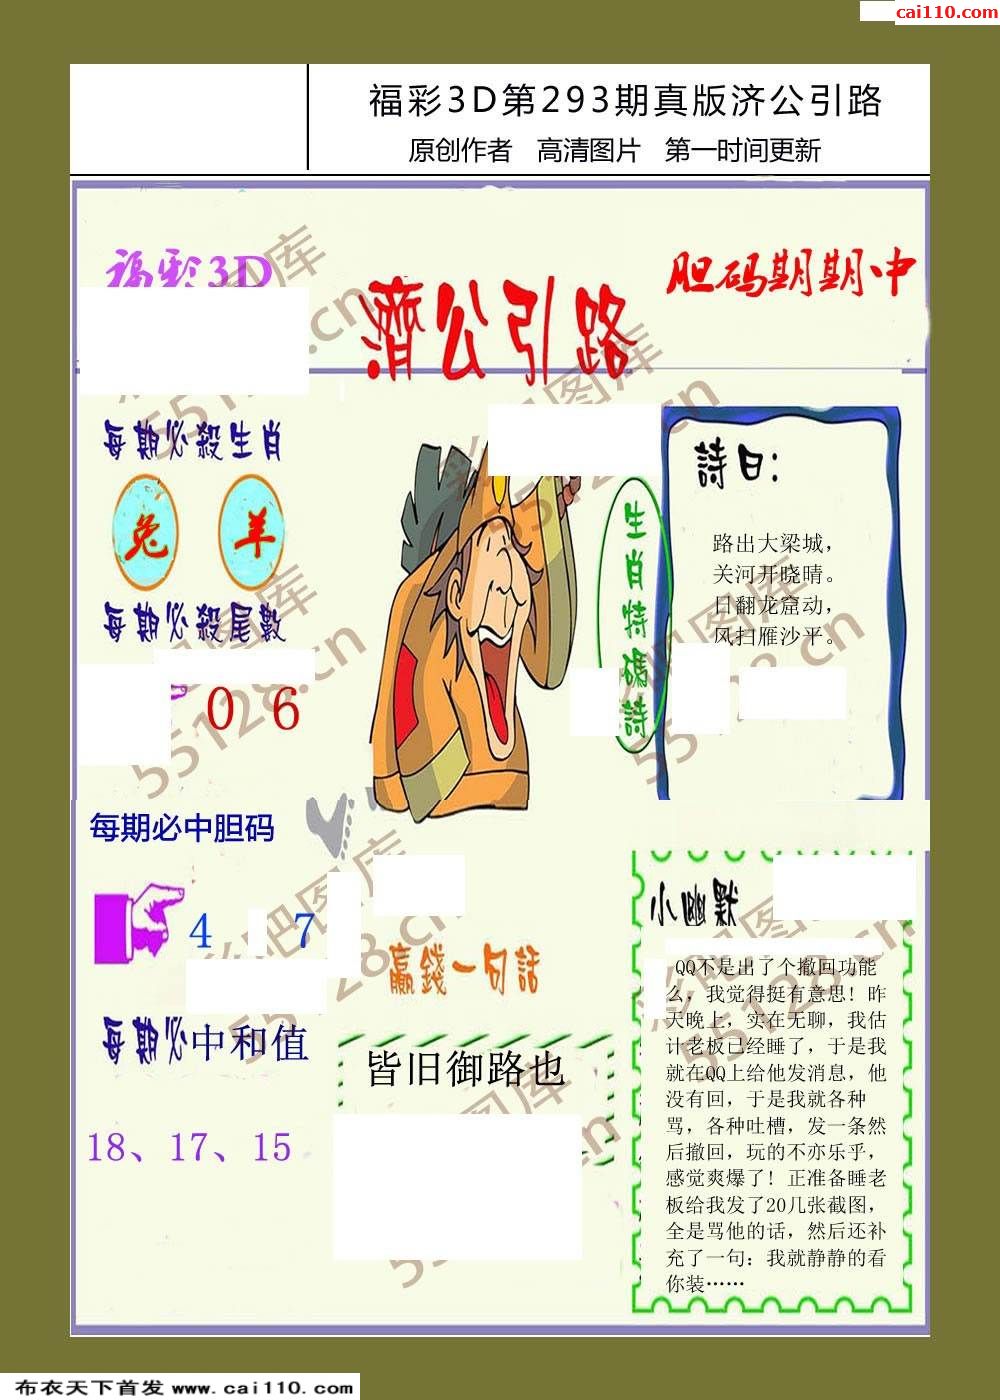 cai110.com
福彩3D第293期真版济公引路
原创作者 高清图片 第一时间更新
福彩3D
濟公引路
胆码期期中
每期必殺生肖
兔 羊
每期必殺尾數
0 6
每期必中胆码
4 7
每期必中和值
18、17、15
生肖特碼詩
詩曰：
路出大梁城，
关河开晓晴。
日翻龙窟动，
风扫雁沙平。
贏錢一句話
皆旧御路也
小幽默
QQ不是出了个撤回功能
么，我觉得挺有意思！昨
天晚上，实在无聊，我估
计老板已经睡了，于是我
就在QQ上给他发消息，他
没有回，于是我就各种
骂，各种吐槽，发一条然
后撤回，玩的不亦乐乎，
感觉爽爆了！正准备睡老
板给我发了20几张截图，
全是骂他的话，然后还补
充了一句：我就静静的看
你装……
彩吧图库
55128.cn
布衣天下首发 www.cai110.com